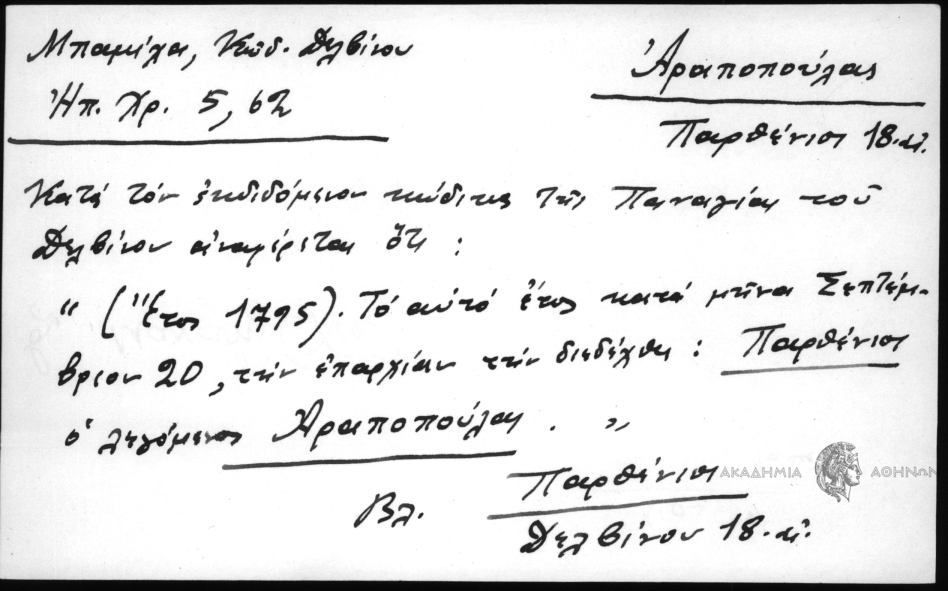 Μπαμίχα, Κώδ. Δελβίνου
Ἠπ. Χρ. 5, 62
Ἀραποπούλας
Παρθένιος 18. αἰ.
Κατά τόν ἐκδιδόμενον κώδικα τῆς Παναγίας τοῦ
Δελβίνου ἀναφέρεται ὅτι :
“ (Ἔτος 1795). Τό αὐτό ἔτος κατά μῆνα Σεπτέμ-
βριον 20, τήν ἐπαρχίαν τήν διεδέχθη : Παρθένιος
ὁ λεγόμενος Ἀραποπούλας . ”
Βλ. Παρθένιος
Δελβίνου 18. αἰ.
ΑΚΑΔΗΜΙΑ ΑΘΗΝΩΝ